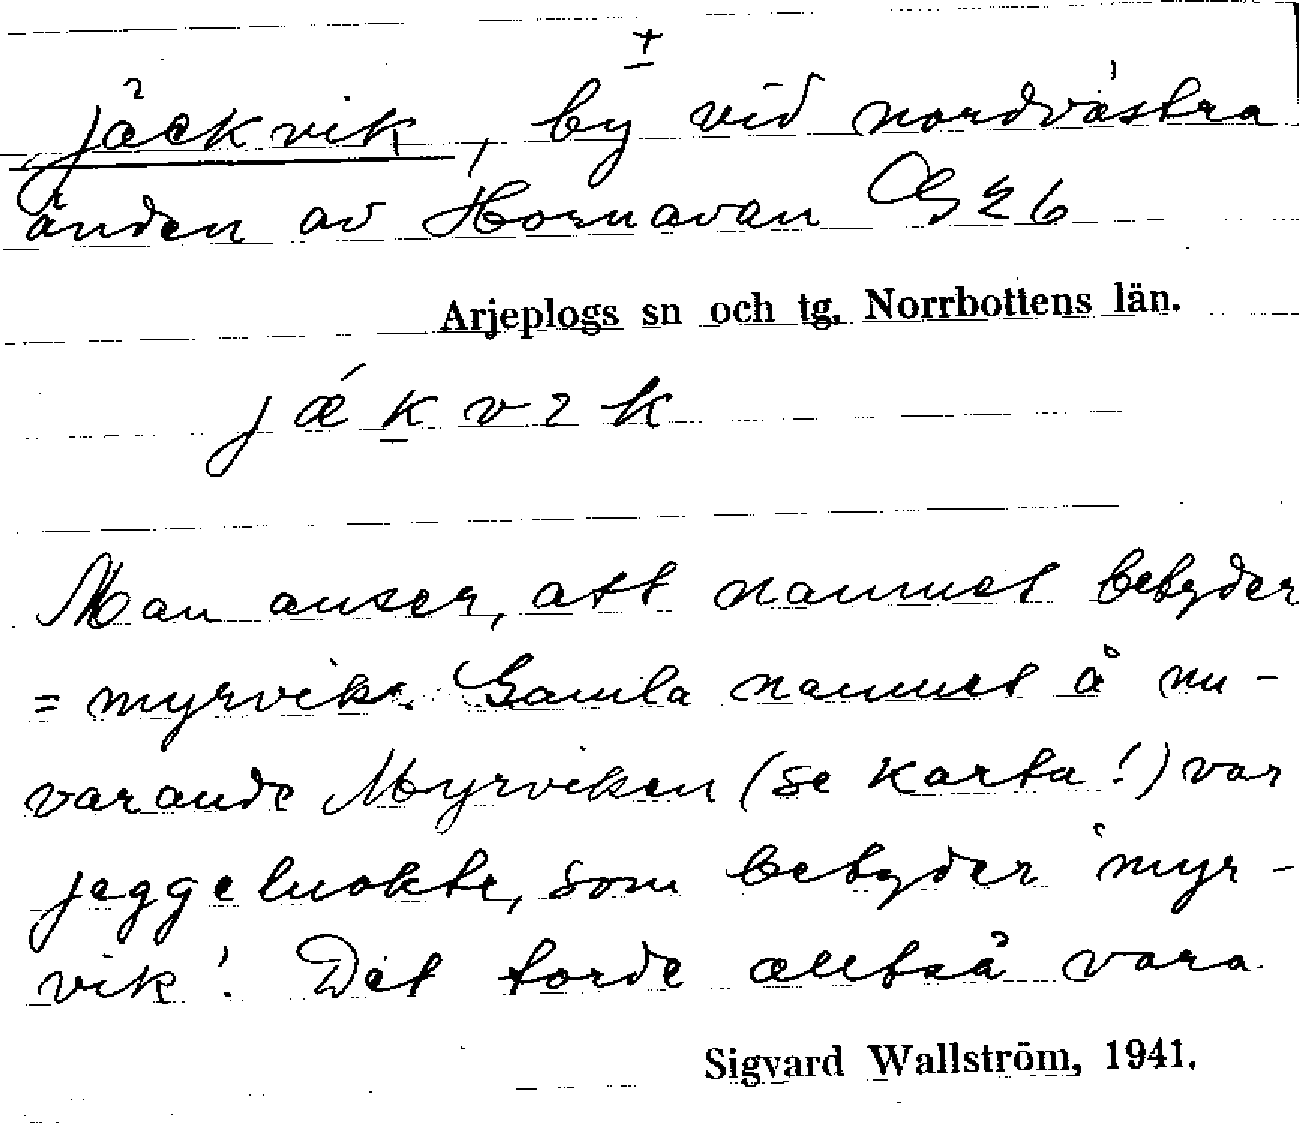 +
Jäckvik, by vid nordvästra
änden av Hornavan G26
Arjeplogs sn och tg. Norrbottens län.
jǽkvɩk
Man anser, att namnet betyder
= myrvik. Gamla namnet å nu-
varande Myrviken (se karta!) var
jeggeluokte, som betyder 'myr-
vik'. Det torde alltså vara
Sigvard Wallström, 1941.